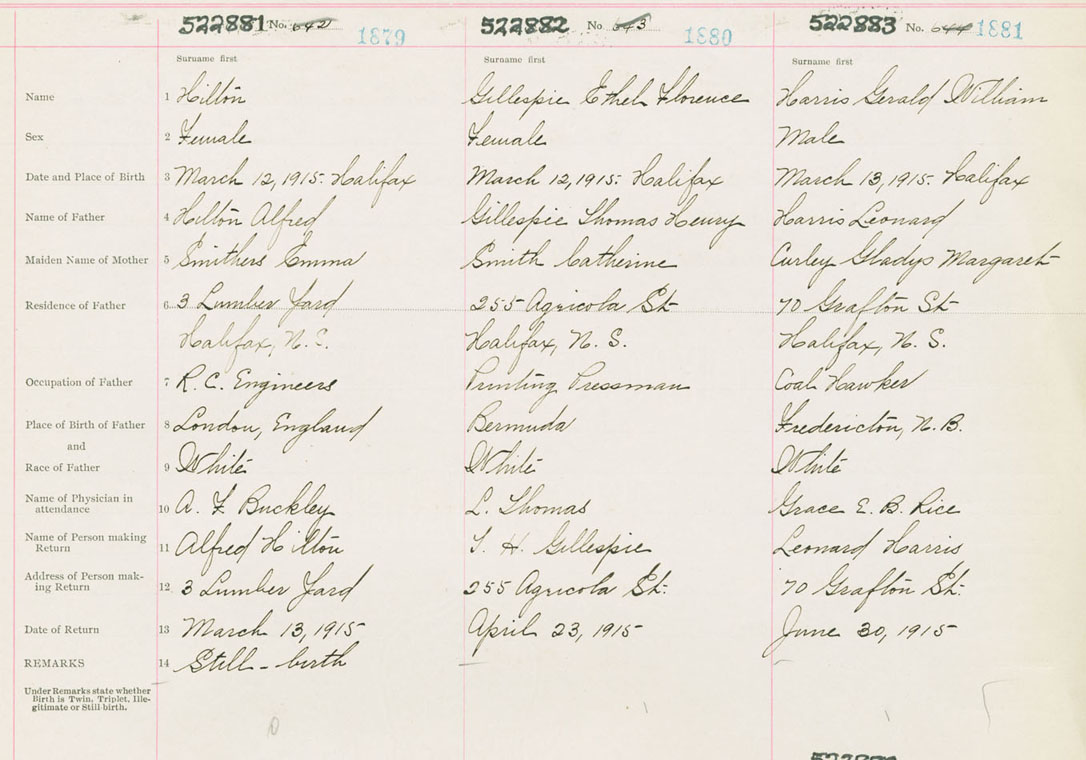 522881 No. 642 1879 522882 No 643 1880 522883 No. 644 1881
Surname first Surname first Surname first
Name 1 Hilton Gillespie Ethel Florence Harris Gerald William
Sex 2 Female Female Male
Date and Place of Birth 3 March 12, 1915. Halifax March 12, 1915. Halifax March 13, 1915. Halifax
Name of Father 4 Hilton Alfred Gillespie Thomas Henry Harris Leonard
Maiden Name of Mother 5 Smithers Emma Smith Catherine Curley Gladys Margaret
Residence of Father 6 3 Lumber Yard 255 Agricola St. 70 Grafton St.
Halifax, N. S. Halifax, N. S. Halifax, N. S.
Occupation of Father 7 R. C. Engineers Printing Pressman Coal Hawker
Place of Birth of Father 8 London, England Bermuda Fredericton, N. B.
and
Race of Father 9 White White White
Name of Physician in
attendance 10 A. F. Buckley L. Thomas Grace E. B. Rice
Name of Person making
Return 11 Alfred Hilton T. H. Gillespie Leonard Harris
Address of Person mak-
ing Return 12 3 Lumber Yard 255 Agricola St. 70 Grafton St.
Date of Return 13 March 13, 1915 April 23, 1915 June 30, 1915
REMARKS 14 Still-birth
Under Remarks state whether
Birth is Twin, Triplet, Ille-
gitimate or Still-birth.